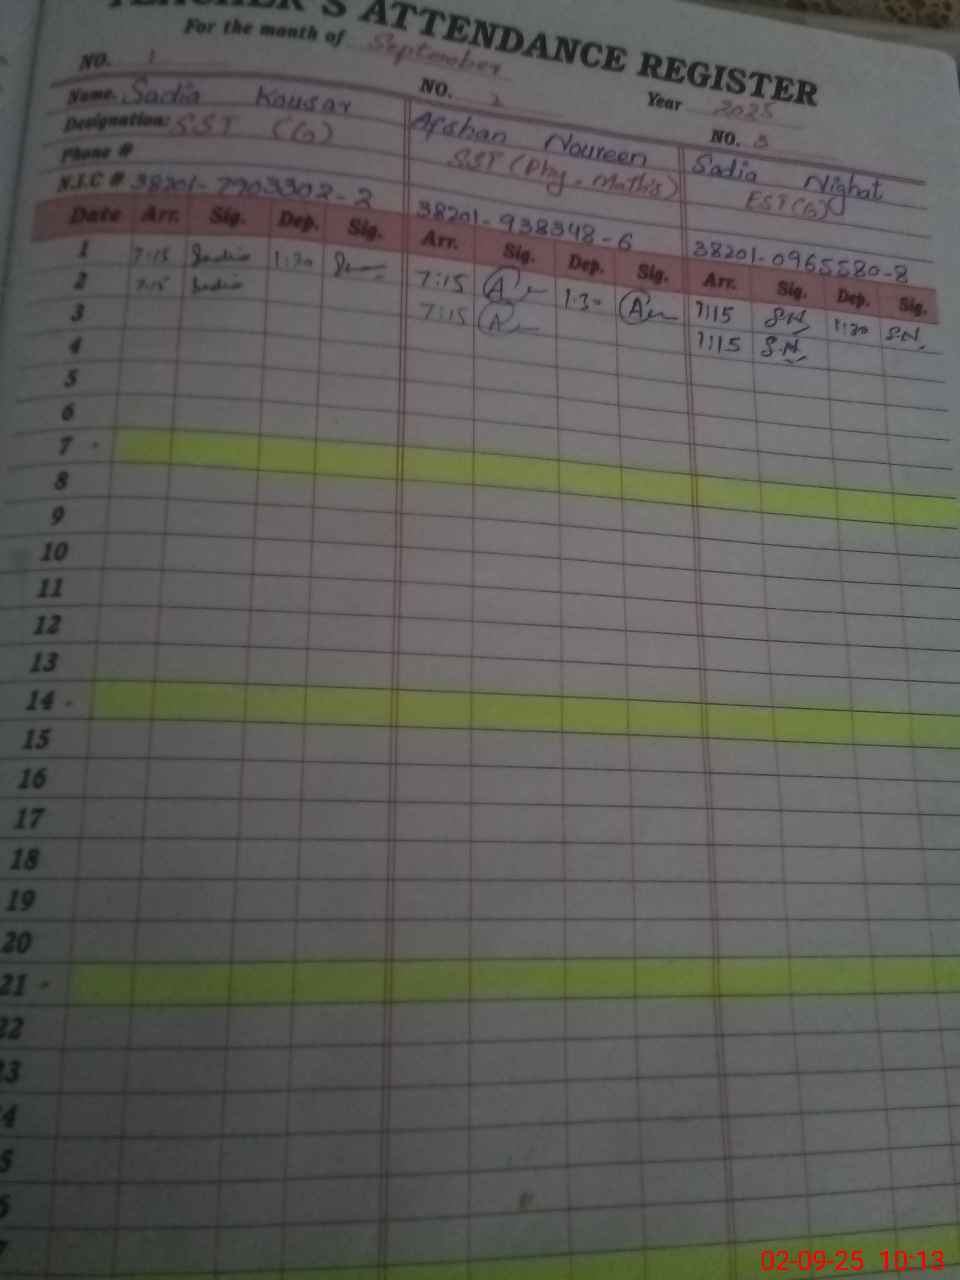 TEACHER'S ATTENDANCE REGISTER
For the month of September Year 2025
NO. 1 NO. 2 NO. 3
Name. Sadia Kousar Afshan Noureen Sadia Nighat
Designation: SST (G) SST (Phy, Maths) EST (G)
Phone #
N.I.C # 38201-7903302-2 38201-938348-6 38201-0965580-8
Date Arr. Sig. Dep. Sig. Arr. Sig. Dep. Sig. Arr. Sig. Dep. Sig.
1 7:15 Sadia 1:30 7:15 1:30 7:15 S.N. 1:30 S.N.
2 7:15 Sadia 7:15 7:15 S.N.
3
4
5
6
7
8
9
10
11
12
13
14
15
16
17
18
19
20
21
22
3
4
5
6
7
02-09-25 10:13